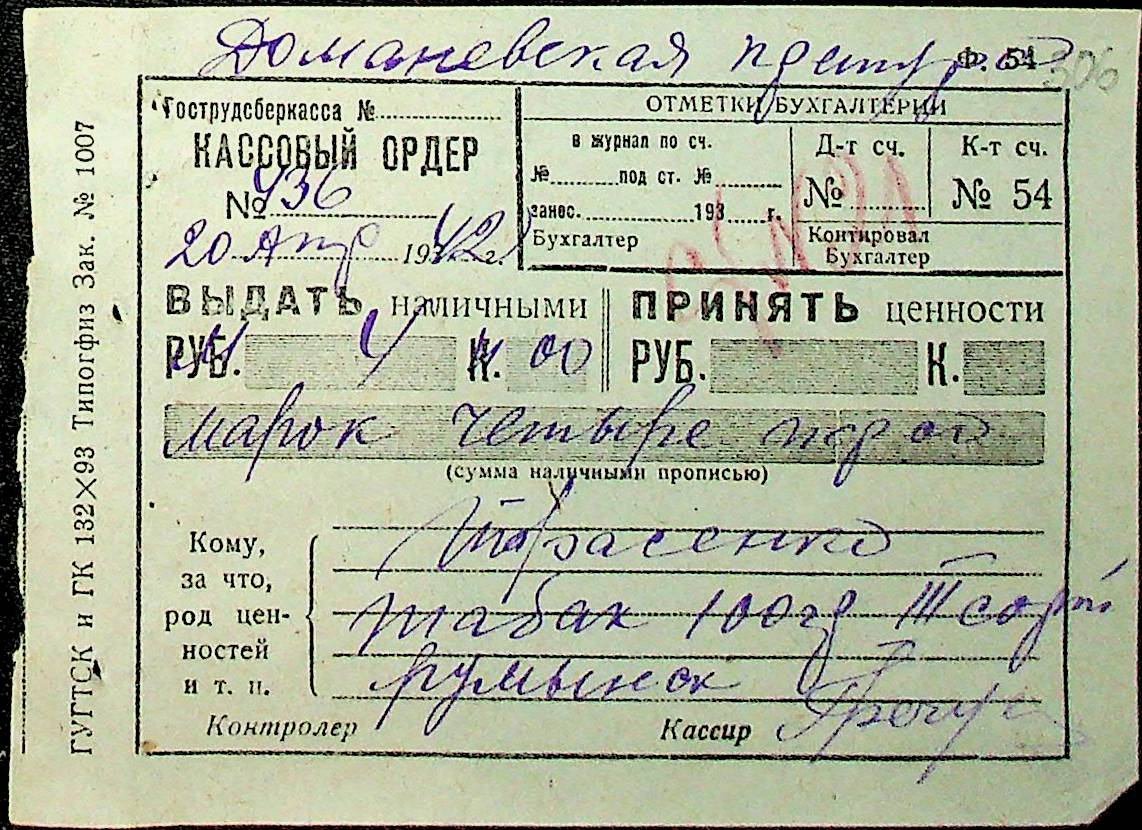 Доманевская претура
Ф. 54 306
Гострудсберкасса №
КАССОВЫЙ ОРДЕР
№ 936
20 Апр 1942 г.
ОТМЕТКИ БУХГАЛТЕРИИ
в журнал по сч.
№ под ст. №
занос. 193 г.
Бухгалтер
Д-т сч.
№
К-т сч.
№ 54
Контировал
Бухгалтер
ВЫДАТЬ наличными
РУБ. 4 К. 00
ПРИНЯТЬ ценности
РУБ. К.
марок четыре
(сумма наличными прописью)
Кому,
за что,
род цен-
ностей
и т. п.
Тарасенко
табак 100 гр III сорт
румынск
Контролер
Кассир
ГУГТСК и ГК 132×93 Типогфиз Зак. № 1007